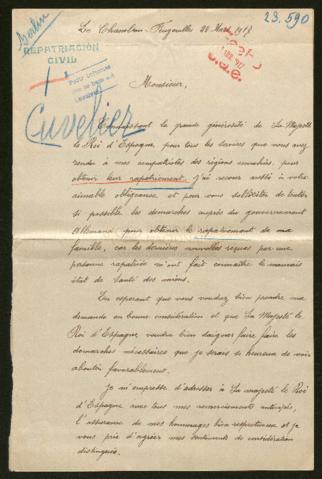 Berlin
23.590
Le Chambon Feugerolles 28 Mars 1917
REPATRIACIÓN
CIVIL
Monsieur,
Cuvelier
Connaissant la grande générosité de Sa Majesté
le Roi d'Espagne, pour tous les services que vous avez
rendu à mes compatriotes des régions envahies, pour
obtenir leur rapatriement. J'ai recours aussi à votre
aimable obligeance et pour vous solliciter de tenter
si possible les démarches auprès du gouvernement
Allemand pour obtenir le rapatriement de ma
famille, car les dernières nouvelles reçues par une
personne rapatriée m'ont fait connaître le mauvais
état de santé des miens.
En espérant que vous voudrez bien prendre ma
demande en bonne considération et que Sa Majesté le
Roi d'Espagne, voudra bien daigner faire faire les
démarches nécessaires que je serais si heureux de voir
aboutir favorablement.
Je m'empresse d'adresser à Sa majesté le Roi
d'Espagne avec tous mes remerciements anticipés,
l'assurance de mes hommages bien respectueux et je
vous prie d'agréer mes sentiments de considération
distinguée.